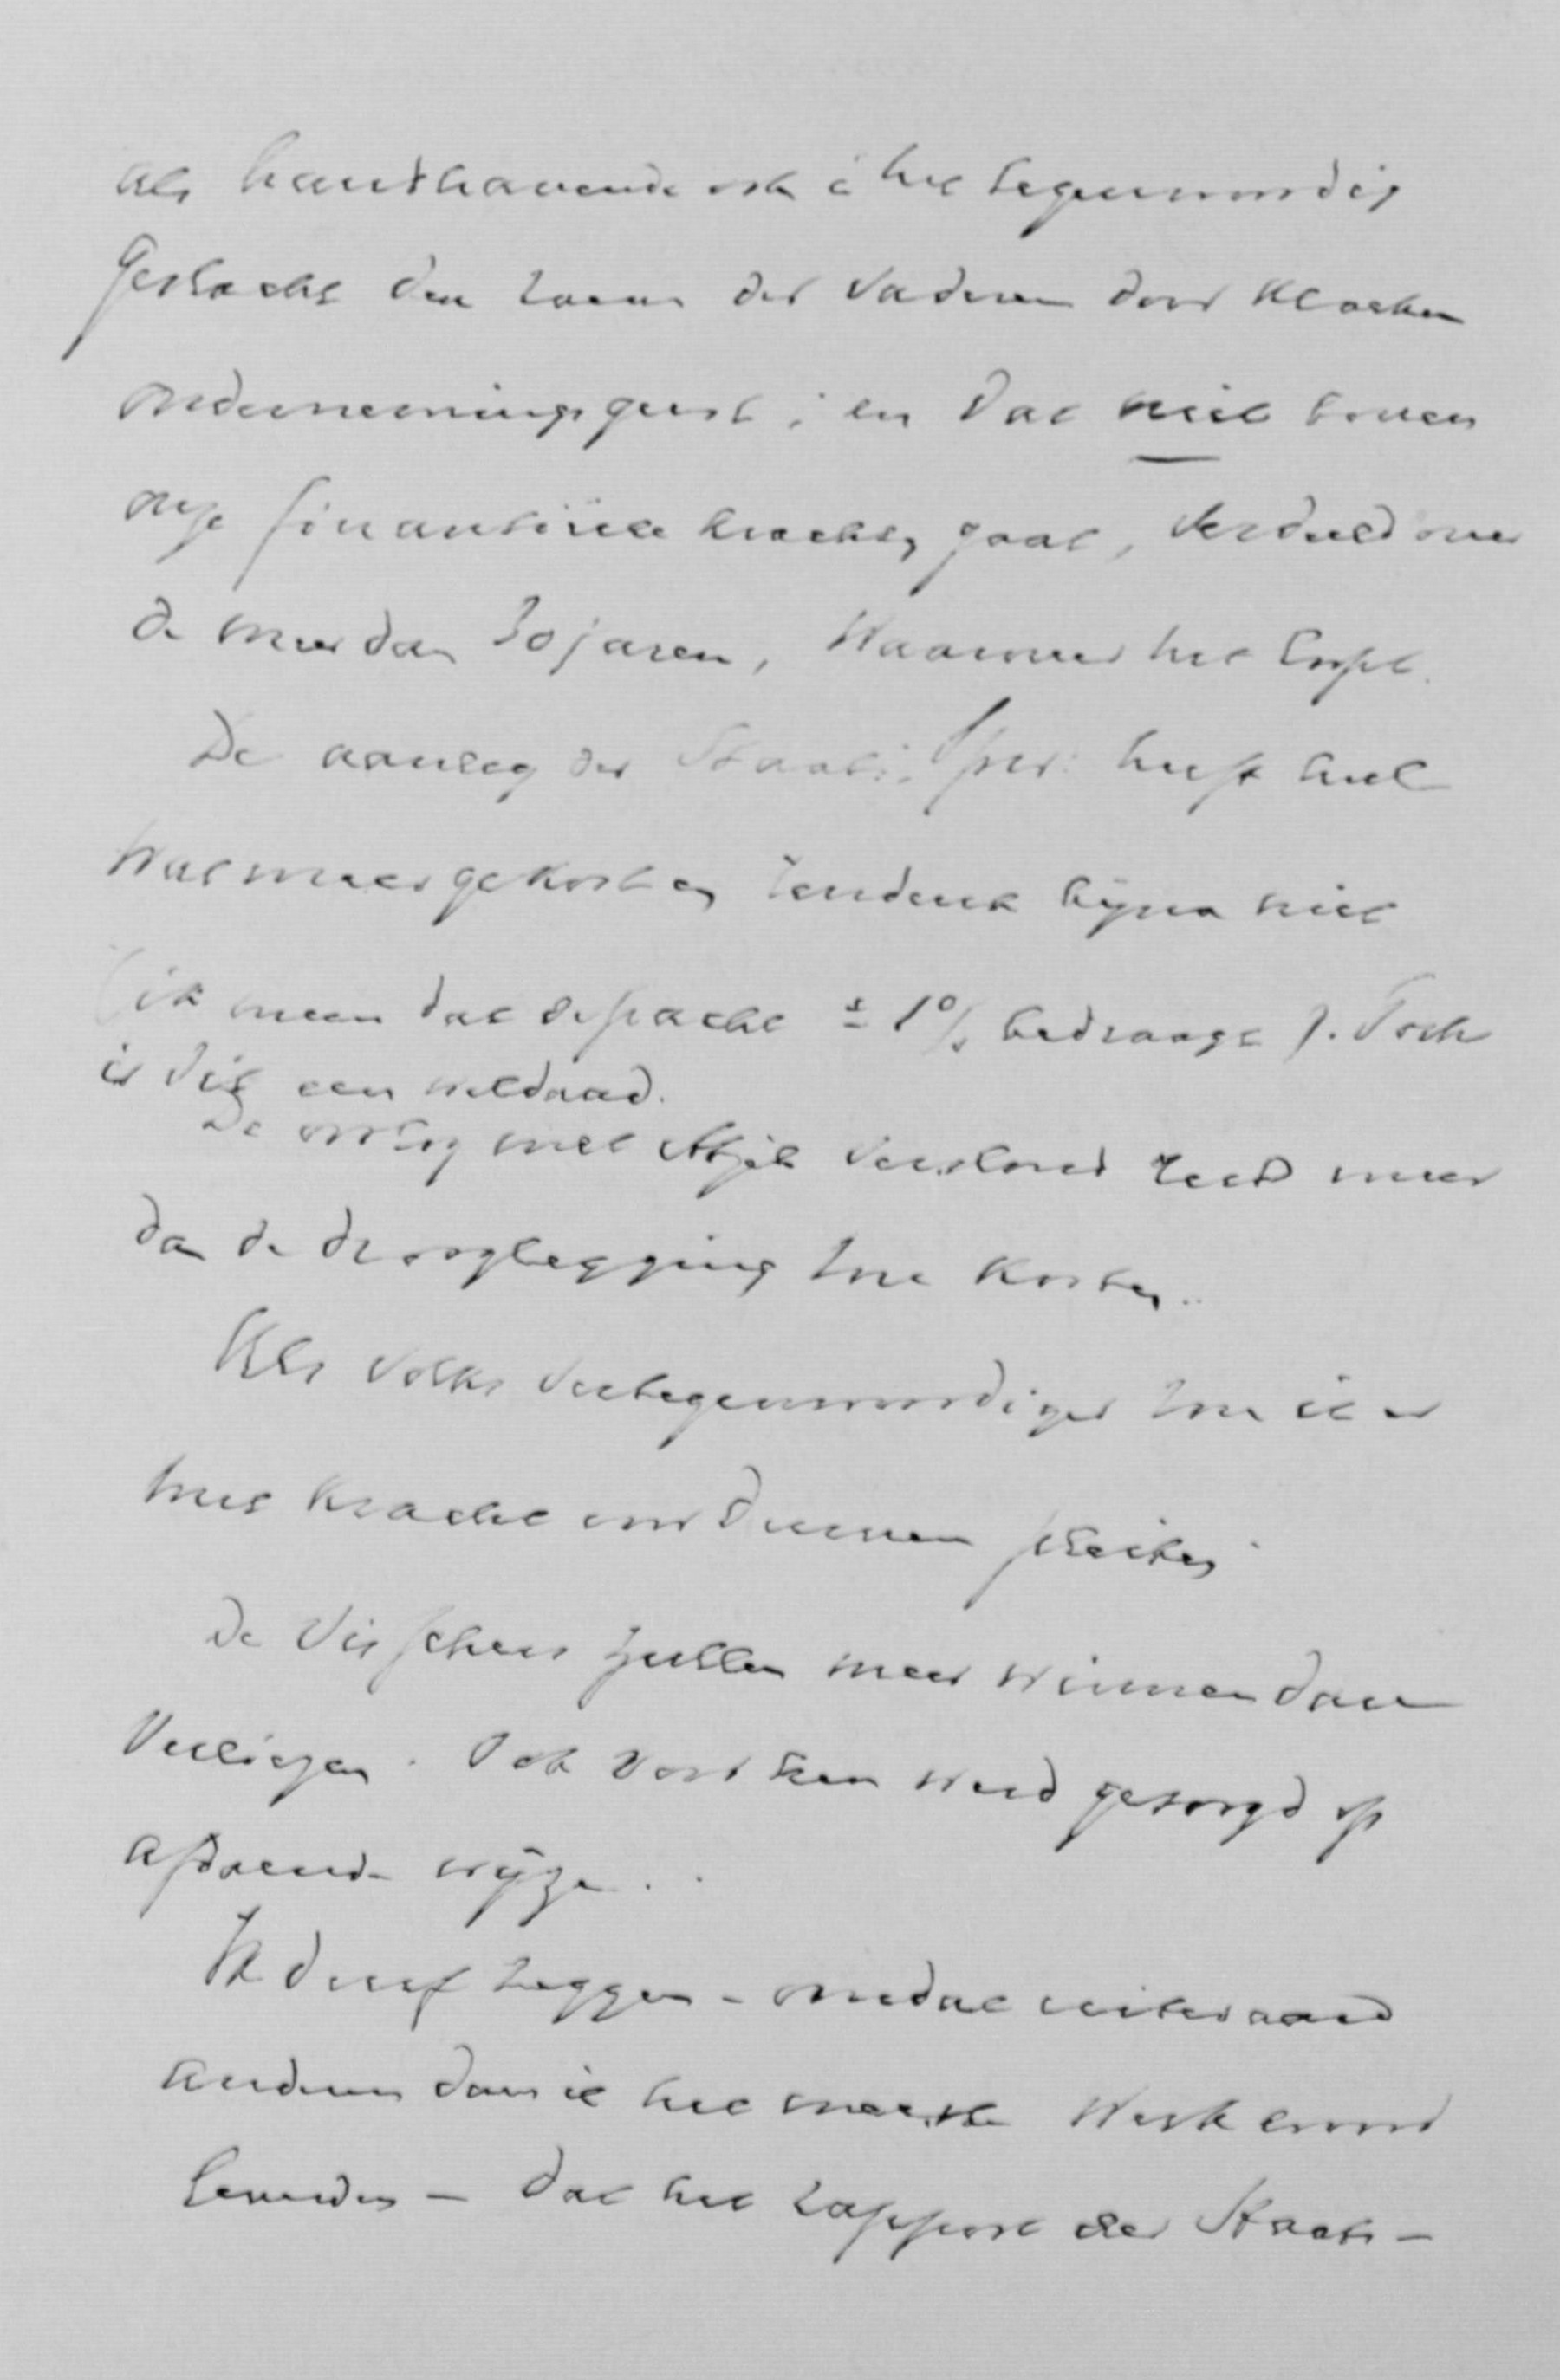 als handhavende ook i het tegenwoordig
geslacht den roem der vaderen door kloeken
ondernemingsgeest; en dat niet boven
onze finantiëele krachten gaat, verdeeld over
de meer dan 30 jaren, waarover het loopt.
De aanleg der Staats. Spor: heeft heel
wat meer gekost en rendeert bijna niet
(ik meen dat de pacht ± 1% bedraagt). Toch
is dit een weldaad.
De oorlog met Atjeh verslond reeds meer
dan de drooglegging zou kosten.
Als volksvertegenwoordiger zou ik er
met kracht voor durven pleiten.
De visschers zullen meer winnen dan
verliezen. Ook voor hen werd gezorgd op
afdoende wijze.
Ik durf zeggen - omdat uiteraard
anderen dan ik het meeste werk ervoor
leverden - dat het rapport der Staats-